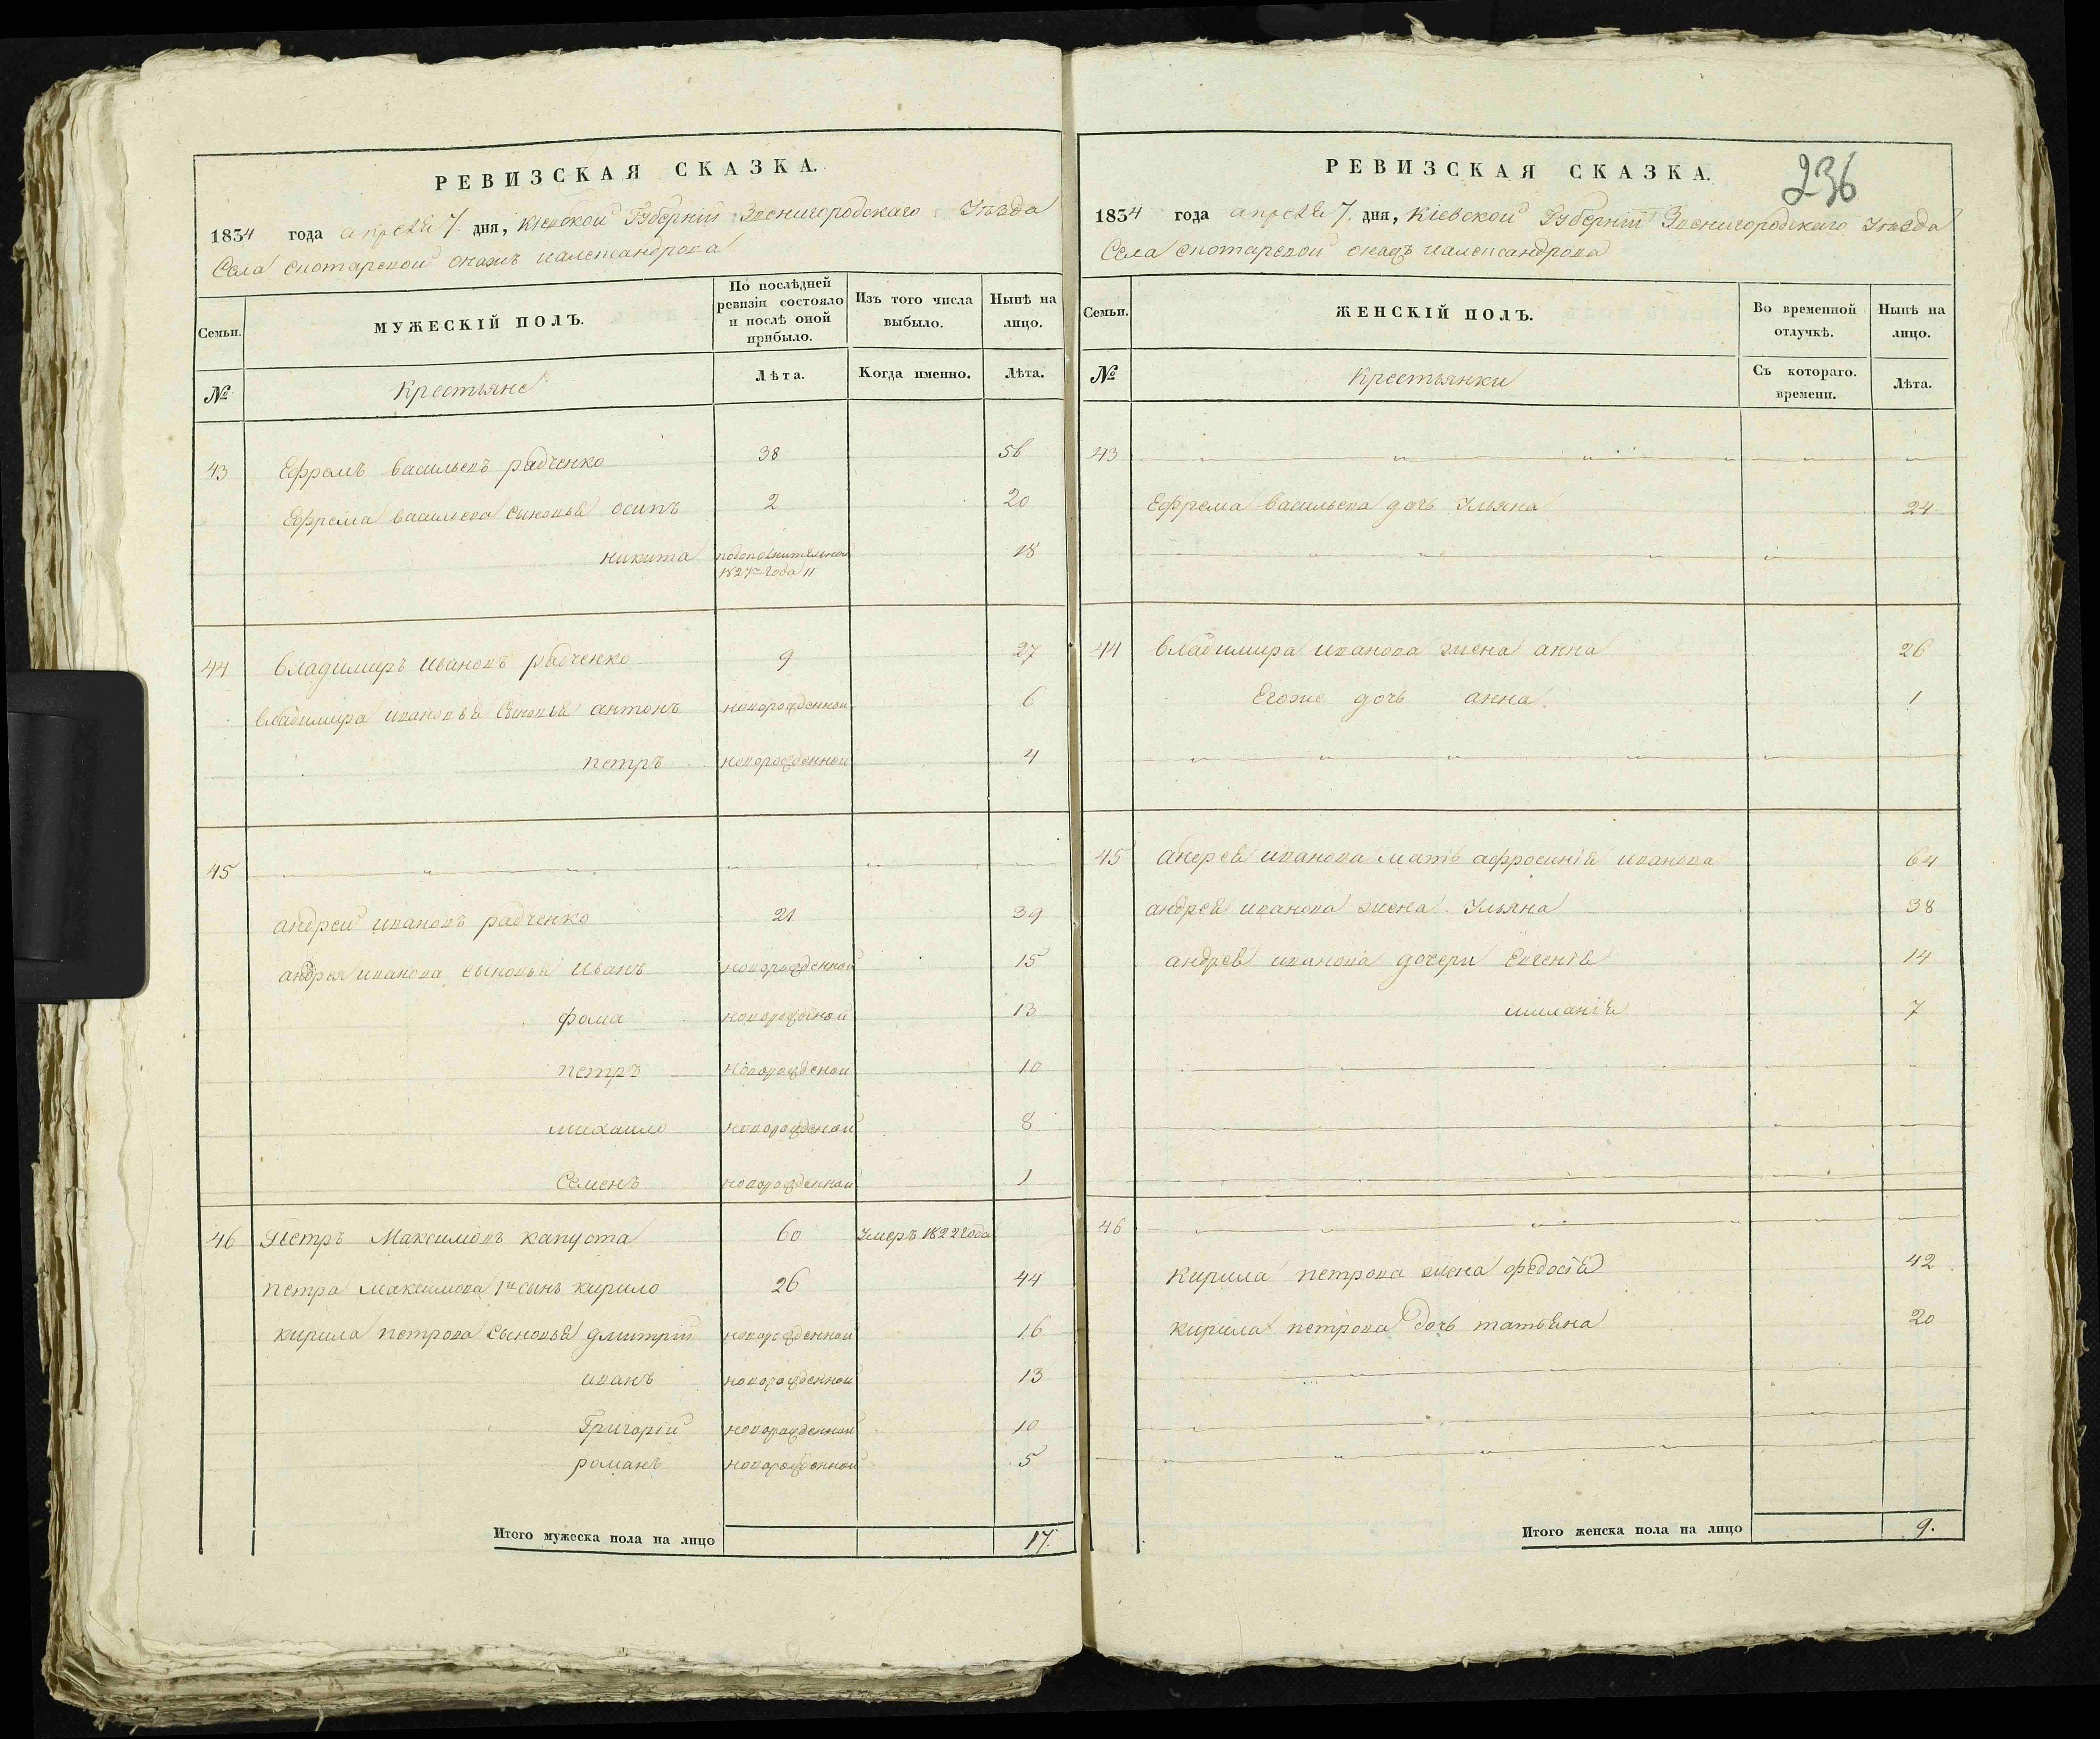 РЕВИЗСКАЯ СКАЗКА.
1834 года апреля 7. дня, Кіевской Губерніи Звенигородскаго Уезда
Села скотаревой онаяжъ иалександровка
Семьи. МУЖЕСКІЙ ПОЛЪ. По послѣдней ревизіи состояло и послѣ оной прибыло. Изъ того числа выбыло. Нынѣ на лицо.
№ Крестьяне Лѣта. Когда именно. Лѣта.
43 Ефремъ васильевъ радченко 38 56
Ефрема васильева сыновья осипъ 2 20
никита подополнительной 1827го года 11 18
44 владимиръ ивановъ радченко 9 27
владимира сыновья антонъ новорожденной 6
петръ новорожденной 4
45
андрей ивановъ радченко 21 39
андрея иванова сыновья иванъ новорожденной 15
фома новорожденой 13
петръ новорожденой 10
михаило новорожденой 8
Семенъ новорожденной 1
46 Петръ Максимовъ капуста 60 Умеръ 1822 года
петра максимова 1й сынъ кирило 26 44
кирила петрова сыновья дмитрій новорожденной 16
иванъ новорожденной 13
Григорій новорожденной 10
романъ новорожденной 5
Итого мужеска пола на лицо 17.
236
РЕВИЗСКАЯ СКАЗКА.
1834 года апреля 7. дня, Кіевской Губерніи Звенигородскаго Уезда
Села скотаревой онаяжъ иалександровка
Семьи. ЖЕНСКІЙ ПОЛЪ. Во временной отлучкѣ. Нынѣ на лицо.
№ Крестьянки Съ котораго времени. Лѣта.
43
Ефрема васильева дочь Ульяна 24
44 владимира иванова жена анна 26
Егоже дочь анна 1
45 андрея иванова мать афросинія иванова 64
андрея иванова жена Ульяна 38
андрея иванова дочери Евгенія 14
миланія 7
46
кирила петрова жена федосія 42
кирила петрова дочь татьяна 20
Итого женска пола на лицо 9.